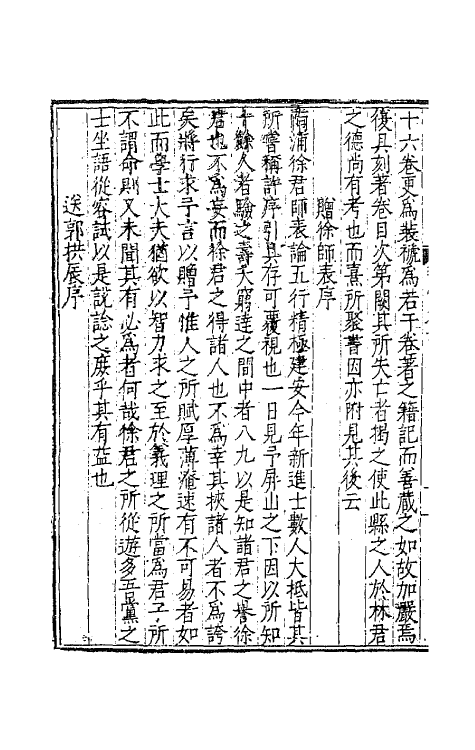 十六卷更為裝褫為若干卷著之籍記而善藏之如故加嚴焉
復具刻著卷目次第闕其所失亡者揭之使此縣之人於林君
之德尚有考也而熹所聚書因亦附見其後云
贈徐師表序
南浦徐君師表論五行精極建安今年新進士數人大抵皆其
所嘗稱許序引具存可覆視也一日見予屏山之下因以所知
十餘人者驗之壽夭窮達之間中者八九以是知諸君之譽徐
君也不為妄而徐君之得諸人也不為幸其挾諸人者不為誇
矣將行求予言以贈予惟人之所賦厚薄淹速有不可易者如
此而學士大夫猶欲以智力求之至於義理之所當為君子所
不謂命則又未聞其有必為者何哉徐君之所從遊多吾黨之
士坐語從容試以是說諗之庶乎其有益也
送郭拱辰序